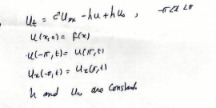 u_t = c²u_xx - hu + hu_0 , -π<x<π
u(x,0) = f(x)
u(-π,t) = u(π,t)
u_x(-π,t) = u_x(π,t)
h and u_0 are constants